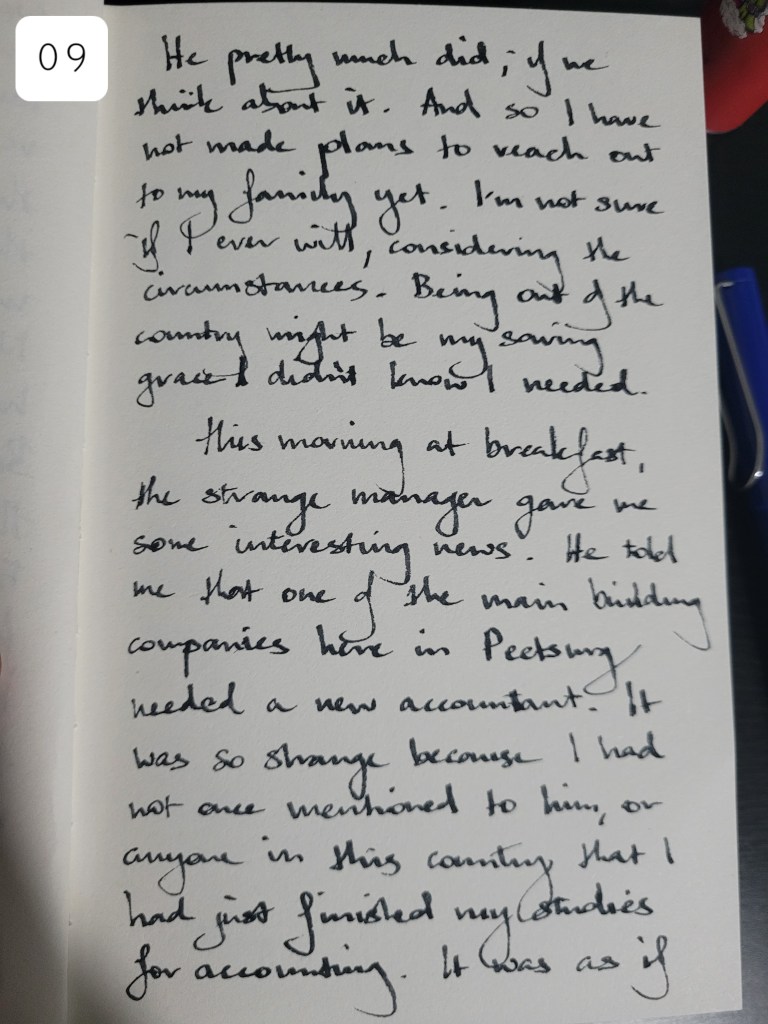 09
He pretty much did, if we
think about it. And so I have
not made plans to reach out
to my family yet. I'm not sure
if I ever will, considering the
circumstances. Being out of the
country might be my saving
grace I didn't know I needed.
This morning at breakfast,
the strange manager gave me
some interesting news. He told
me that one of the main building
companies here in Peetsurg
needed a new accountant. It
was so strange because I had
not once mentioned to him, or
anyone in this country that I
had just finished my studies
for accounting. It was as if